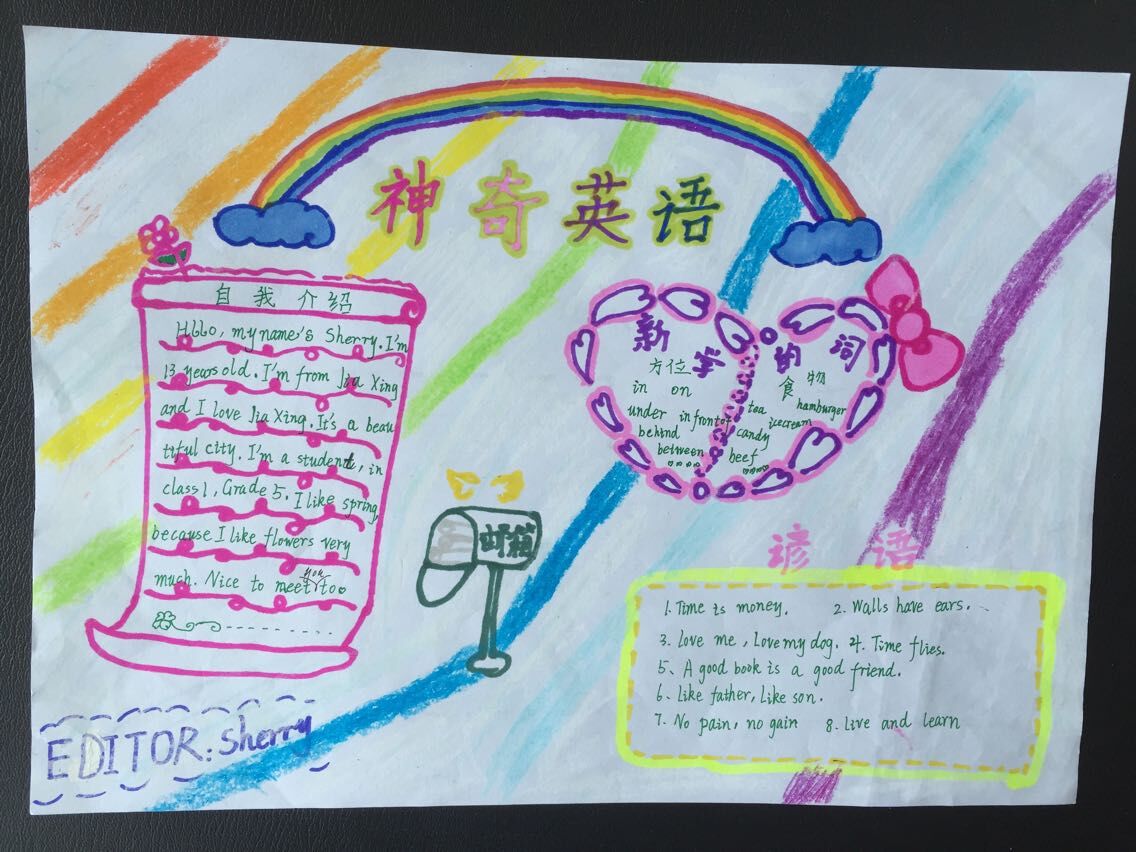 神奇英语
自我介绍
Hllo, my name's Sherry. I'm
13 years old. I'm from Jia Xing
and I love Jia Xing. It's a beau
tiful city. I'm a student, in
class1, Grade 5. I like spring,
because I like flowers very
much. Nice to meet you to.
新学的词
方位
in on
under in front of
behind
between
食物
hamburger
tea
icecream
candy
beef
邮箱
谚语
1. Time is money. 2. Walls have ears.
3. Love me, Love my dog. 4. Time flies.
5、A good book is a good friend.
6、Like father, Like son.
7、No pain, no gain 8. Live and learn
EDITOR: Sherry